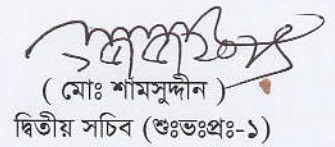 ( মোঃ শামসুদ্দীন )
দ্বিতীয় সচিব (শুঃভঃপ্রঃ-১)